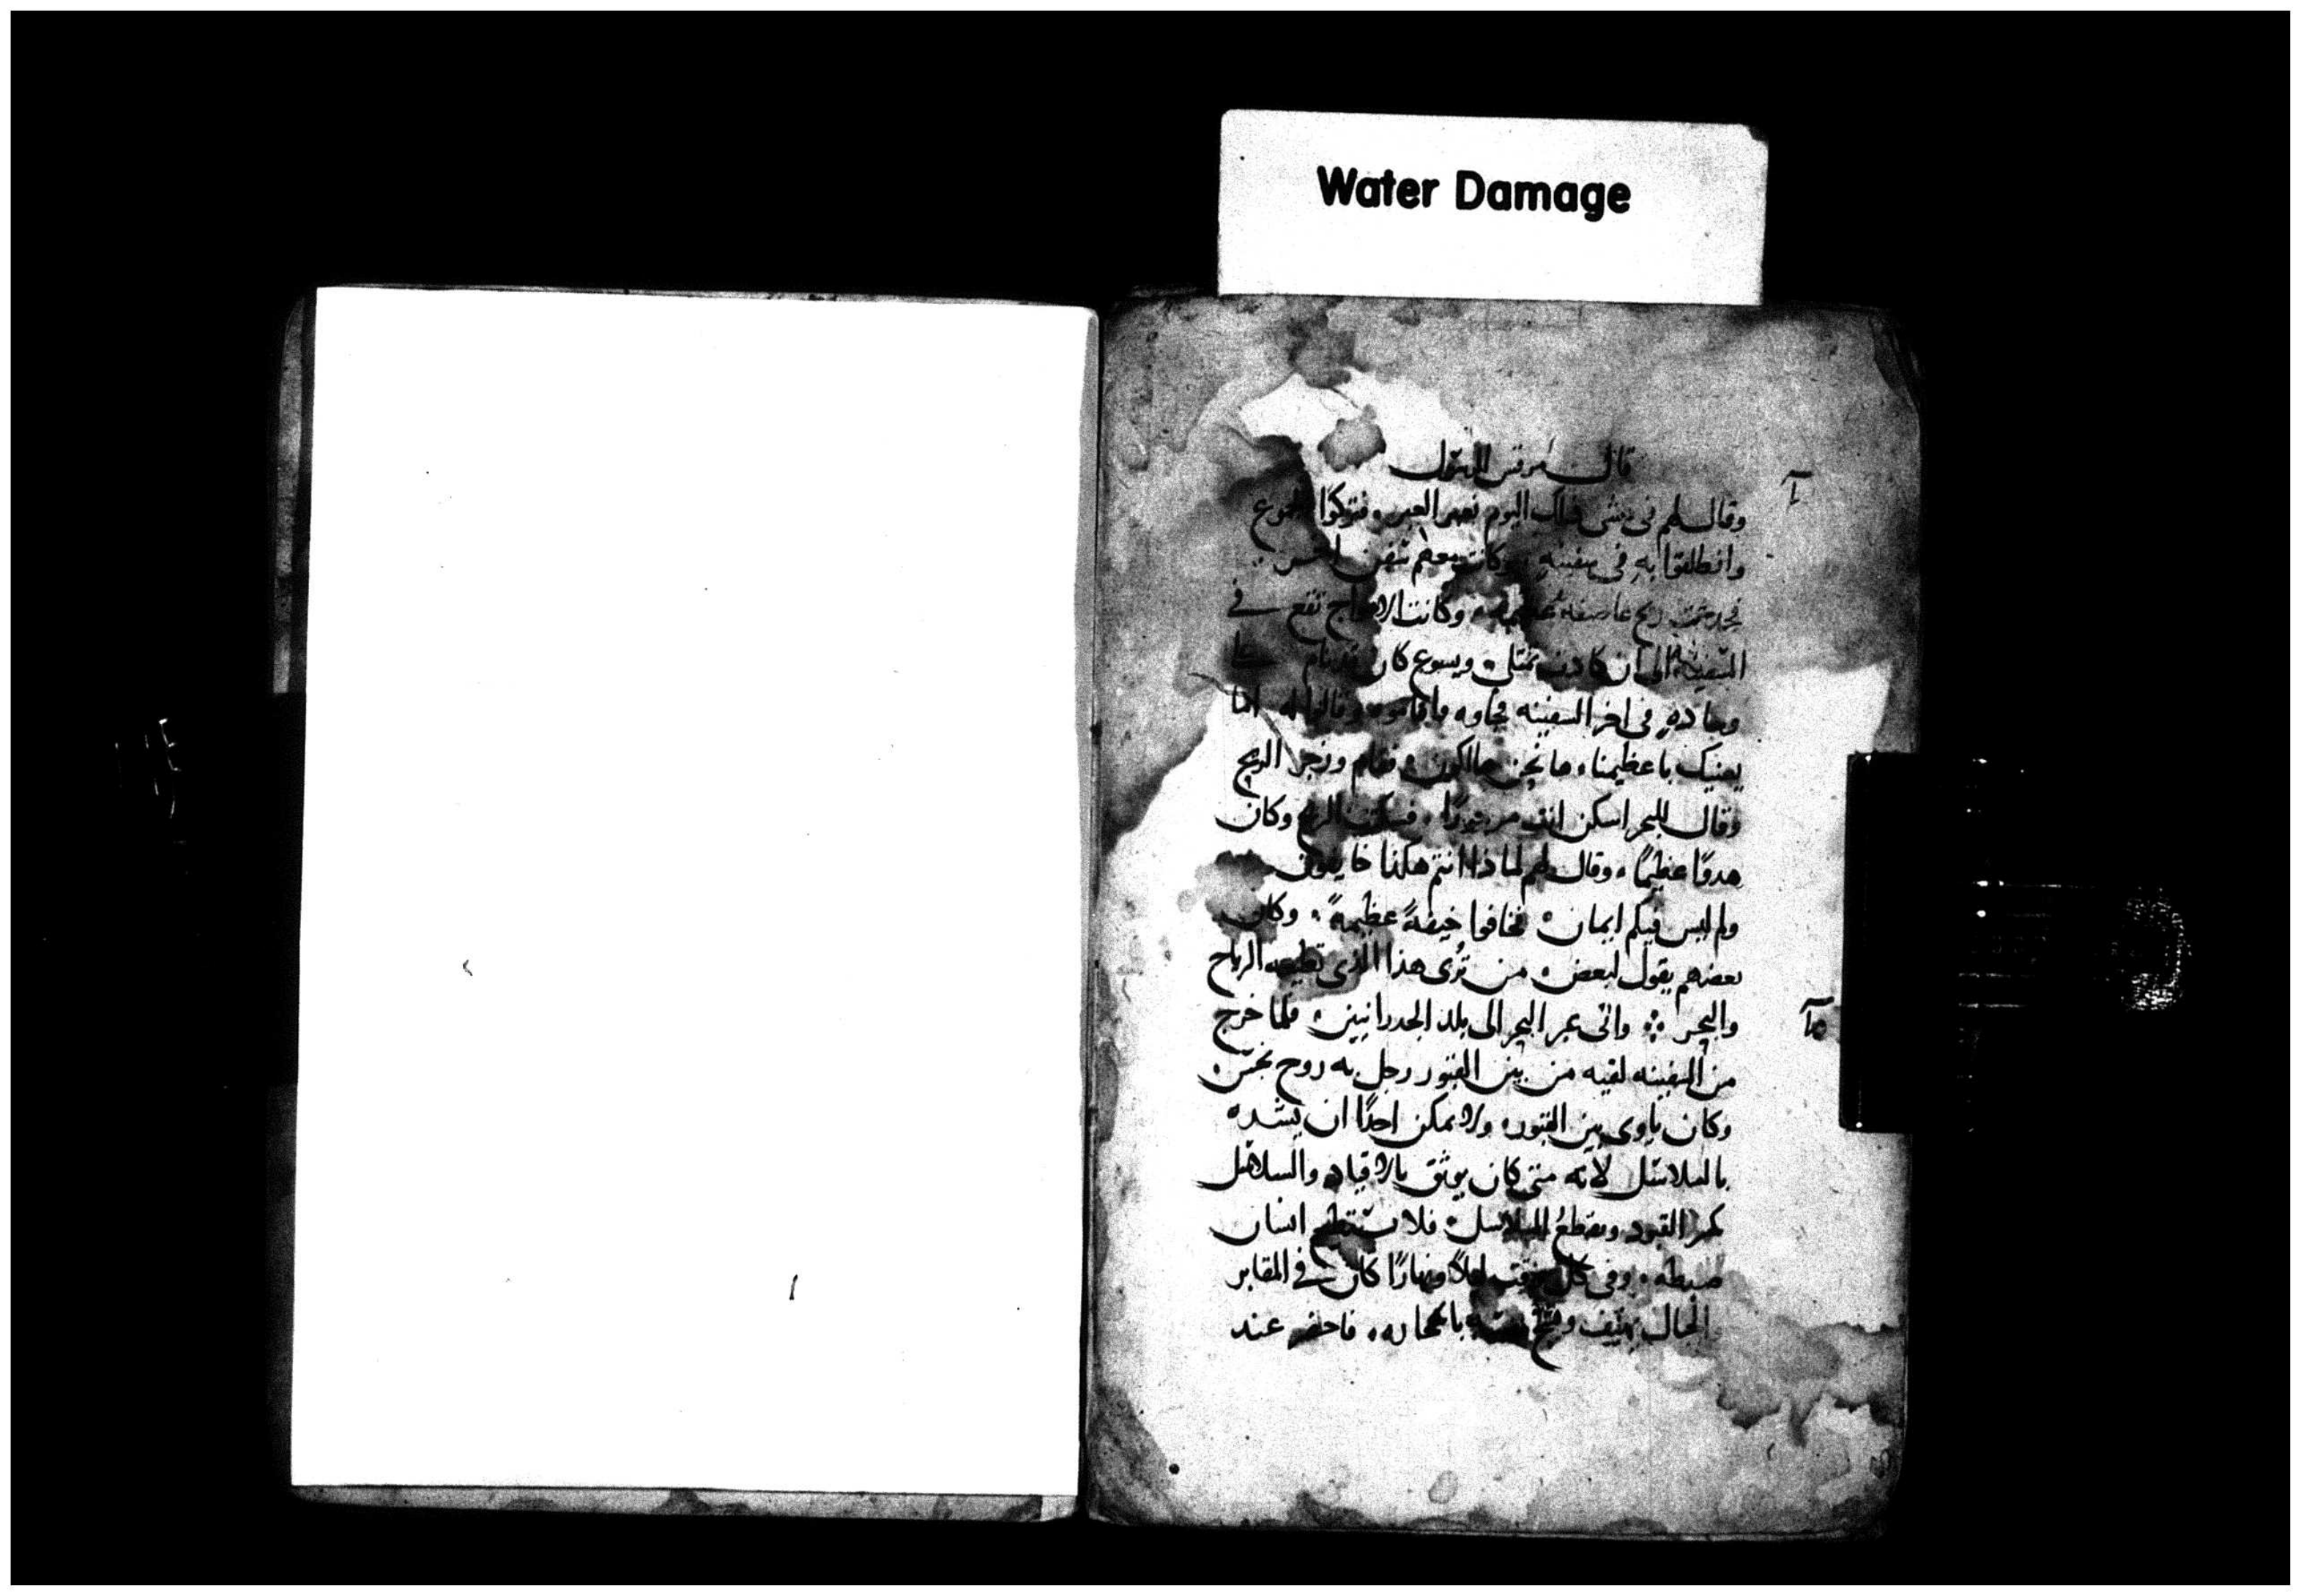 Water Damage
قال مرقس
وقال لهم في ذلك اليوم نعبر العبر ۰ فتركوا الجموع
وانطلقوا به في سفينه وكانت معهم سفن
ريح عاصفه وكانت الامواج تقع في
السفينه الى ان كادت تمتلى ۰ ويسوع كان نام
في اخر السفينه واقاموه وقالوا له اما
يعنيك ياعظيمنا ۰ ما نحن هالكون ۰ فقام وزجر الريح
وقال للبحر اسكن انت فسكنت الريح وكان
هدوًا عظيمًا ۰ وقال لهم لماذا انتم هكذا خايفون
ولم ليس فيكم ايمان ۰ فخافوا خيفةً عظيمةً ۰ وكان
بعضهم يقول لبعض ۰ من تُرى هذا الذى تطيعه الرياح
والبحر ۰ واتى عبر البحر الى بلد الجدرانيين ۰ فلما خرج
من السفينه لقيه من بين القبور رجل به روح نجس ۰
وكان ياوى بين القبور ۰ ولا يمكن احدًا ان يشده
بالسلاسل لانه متى كان يوثق بالاقياد والسلاسل
كسر القيود ويقطعُ السلاسل ۰ فلا يستطيع انسان
ضبطه ۰ وفى كل وقت ليلاً ونهارًا كان في المقابر
والجبال يهتف بالحجاره ۰ فاحضر عند